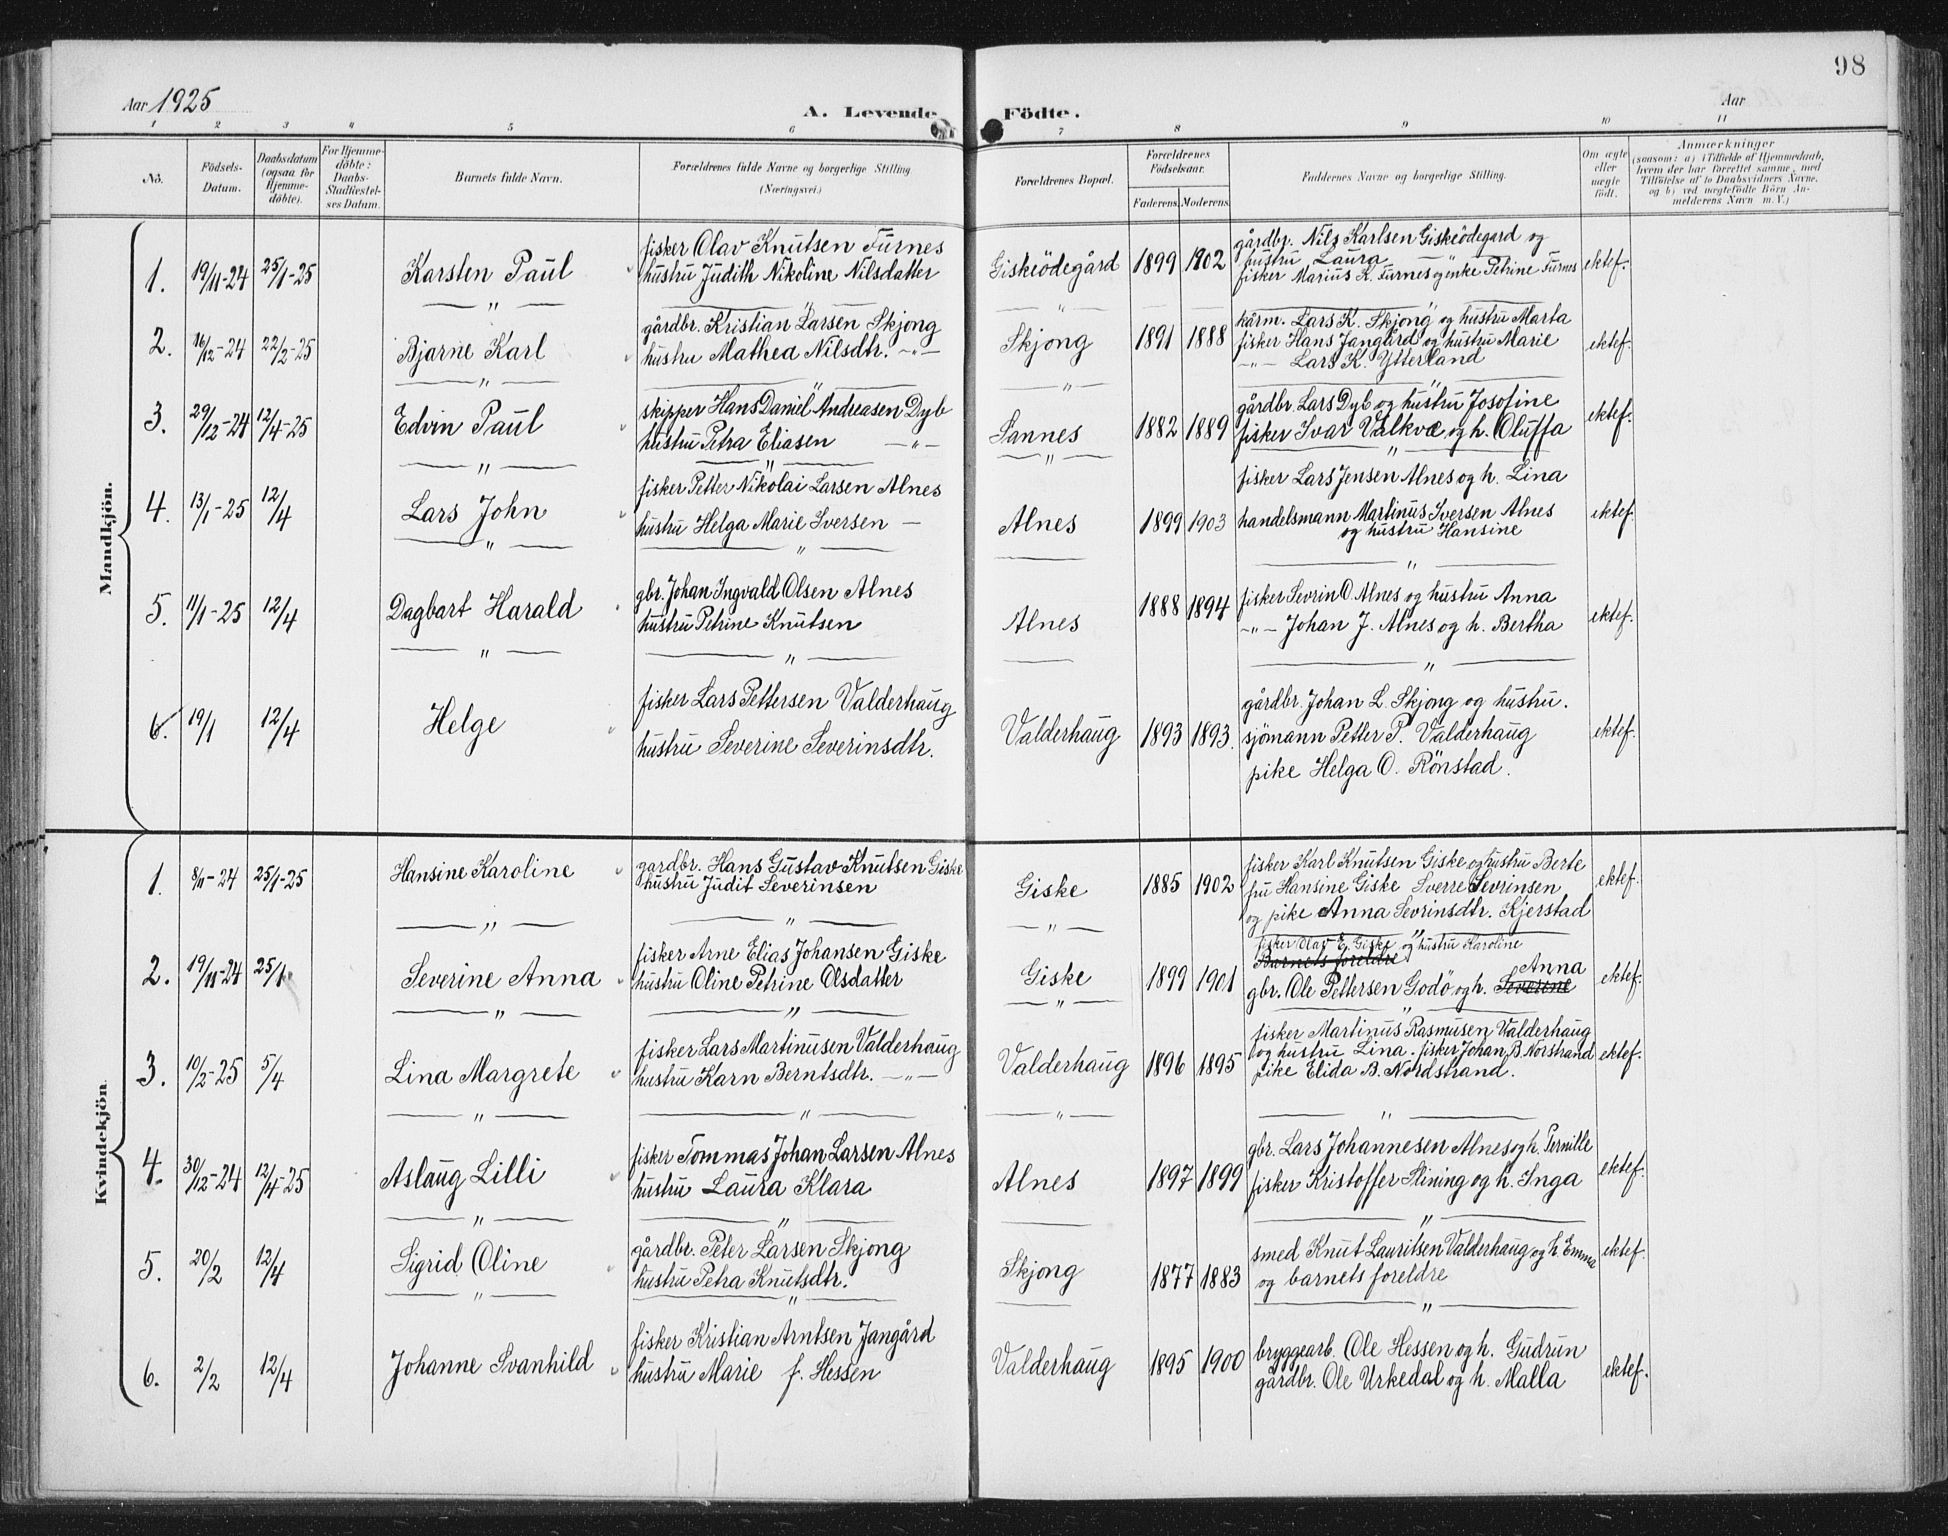 98
Aar 1925
A. Levende Födte.
Aar
1 2 3 4 5 6 7 8 9 10 11
No.
Födsels-
Datum.
Daabsdatum
(ogsaa for
Hjemme-
döbte).
For Hjemme-
döbte:
Daabs-
Stadfæstel-
ses Datum.
Barnets fulde Navn.
Forældrenes fulde Navne og borgerlige Stilling
(Næringsvei.)
Forældrenes Bopæl.
Forældrenes
Födselsaar.
Faderens. Moderens.
Faddernes Navne og borgerlige Stilling.
Om ægte
eller
uægte
födt.
Anmærkninger
(saasom: a) i Tilfælde af Hjemmedaab,
hvem der har forrettet samme, med
Tilföielse af to Daabsvidners Navne,
og b) ved uægtefödte Börn An-
melderens Navn m. V.)
Mandkjön.
1. 19/11-24 25/1-25 Karsten Paul
fisker Olav Knutsen Furnes
hustru Judith Nikoline Nilsdatter
Giskeödegård 1899 1902
gårdbr. Nils Karlsen Giskeödegard og
hustru Laura —
fisker Marius K. Furnes og enke Petrine Furnes
ektef.
2. 16/12-24 22/2-25 Bjarne Karl
gårdbr. Kristian Larsen Skjong
hustru Mathea Nilsdtr. —"—
Skjong 1891 1888
kårm. Lars K. Skjong og hustru Marta
fisker Hans Jangård og hustru Marie
—"— Lars K. Ytterland
ektef.
3. 29/12-24 12/4-25 Edvin Paul
skipper Hans Daniel Andreasen Dyb
hustru Petra Eliasen —"—
Sannes 1882 1889
gårdbr. Lars Dyb og hustru Josofine
fisker Ivar Valkvæ og h. Oluffa
ektef.
4. 13/1-25 12/4 Lars John
fisker Petter Nikolai Larsen Alnes
hustru Helga Marie Iversen —
Alnes 1899 1903
fisker Lars Jensen Alnes og h. Lina
handelsmann Martinus Iversen Alnes
og hustru Hansine
ektef.
5. 11/1-25 12/4 Dagbart Harald
gbr. Johan Ingvald Olsen Alnes
hustru Petrine Knutsen
Alnes 1888 1894
fisker Sevrin O. Alnes og hustru Anna
—"— Johan J. Alnes og h. Bertha
ektef.
6. 19/1 12/4 Helge
fisker Lars Pettersen Valderhaug
hustru Severine Severinsdtr.
Valderhaug 1893 1893.
gårdbr. Johan L. Skjong og hustru.
sjömann Petter P. Valderhaug
pike Helga O. Rönstad.
ektef.
Kvindekjön
1. 8/11-24 25/1-25 Hansine Karoline
gardbr. Hans Gustav Knutsen Giske
hustru Judit Severinsen
Giske 1885 1902
fisker Karl Knutsen Giske og hustru Berte
fru Hansine Giske Sverre Sevrinsen
og pike Anna Sevrinsdtr. Kjerstad
ektef.
2. 19/11-24 25/1 Severine Anna
fisker Arne Elias Johansen Giske
hustru Oline Petrine Olsdatter
Giske 1899 1901
fisker Olav E. Giske og hustru Karoline
Barnets foreldre
gbr. Ole Pettersen Godö og h. Severine Anna
ektef.
3. 10/2-25 5/4 Lina Margrete
fisker Lars Martinusen Valderhaug
hustru Karn Berntsdtr. —"—
Valderhaug 1896 1895
fisker Martinus Rasmusen Valderhaug
og hustru Lina. fisker Johan B. Norstrand
pike Elida B. Nordstrand.
ektef.
4. 30/12-24 12/4-25 Aslaug Lilli
fisker Tommas Johan Larsen Alnes
hustru Laura Klara
Alnes 1897 1899
gbr. Lars Johannesen Alnes og h. Pernille
fisker Kristoffer Slining og h. Inga
ektef.
5. 20/2 12/4 Sigrid Oline
gårdbr. Peter Larsen Skjong
hustru Petra Knutsdtr.
Skjong 1877 1883
smed Knut Lauritsen Valderhaug og h. Emma
og barnets foreldre
ektef.
6. 2/2 12/4 Johanne Svanhild
fisker Kristian Arntsen Jangård
hustru Marie f. Hessen
Valderhaug 1895 1900
bryggearb. Ole Hessen og h. Gudrun
gårdbr. Ole Urkedal og h. Malla
ektef.